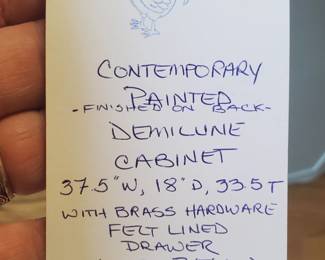 CONTEMPORARY
PAINTED
-FINISHED ON BACK-
DEMILUNE
CABINET
37.5"W, 18"D, 33.5T
WITH BRASS HARDWARE
FELT LINED
DRAWER